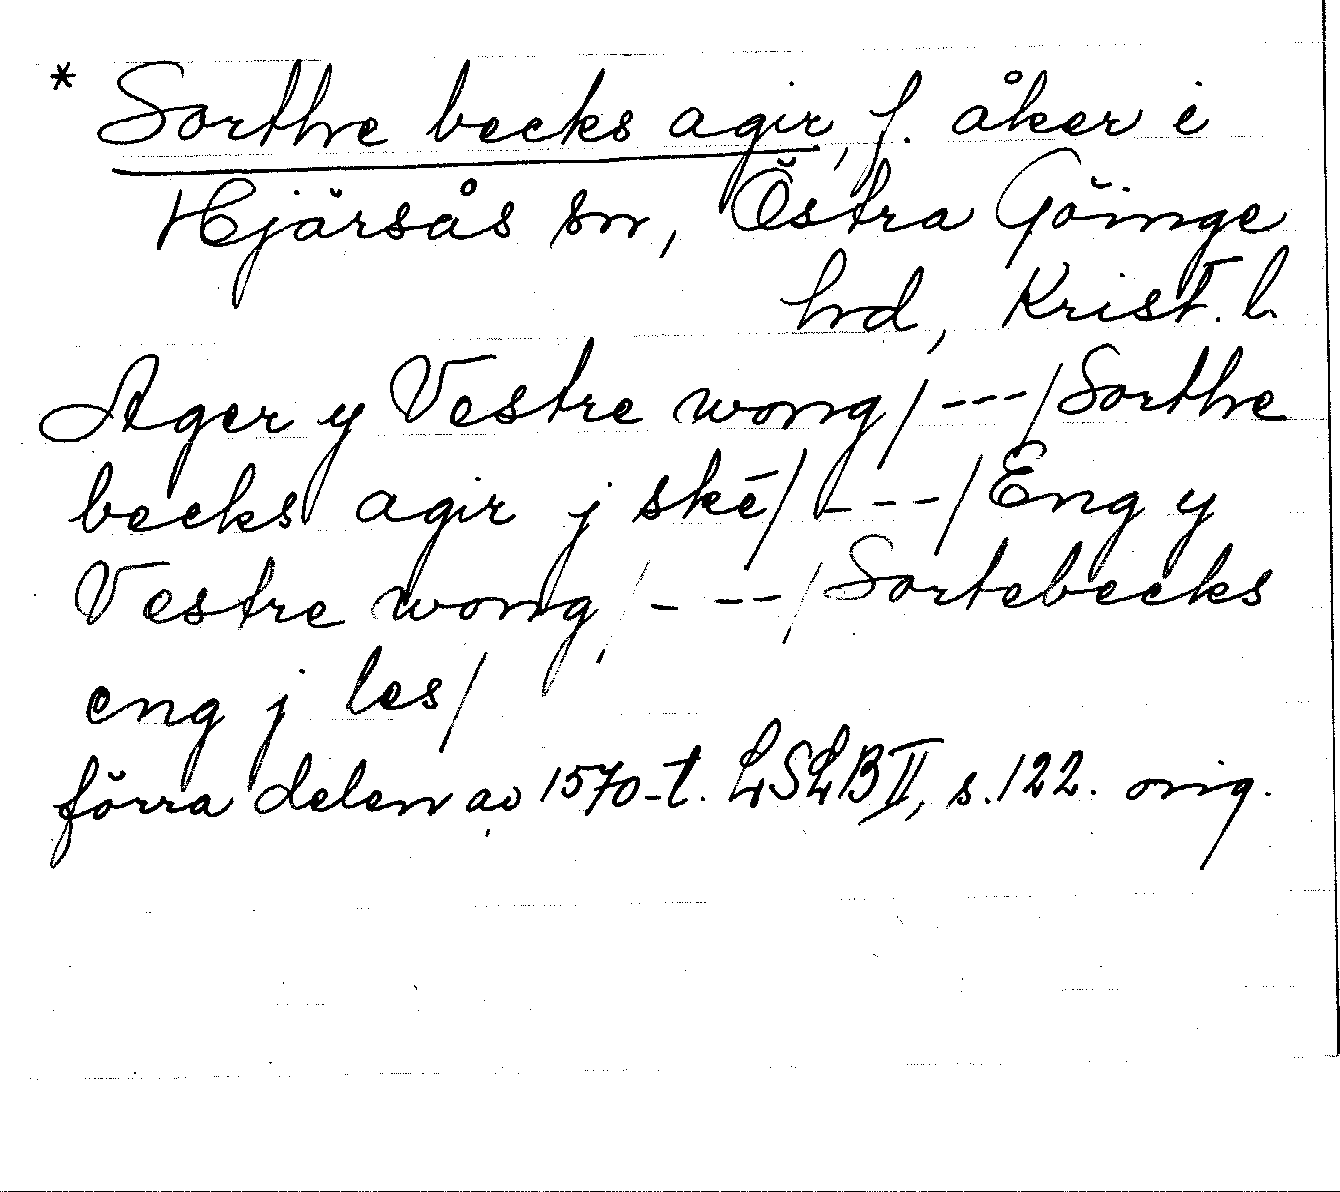 * Sorthe becks agir, f. åker i
Hjärsås sn, Östra Göinge
hrd, Krist. l.
Ager y Vestre wong/ --- /Sorthe
becks agir j skē/ --- /Eng y
Vestre wong, / --- /Sortebecks
eng j les/
förra delen av 1570-t. LSLB II, s. 122. orig.